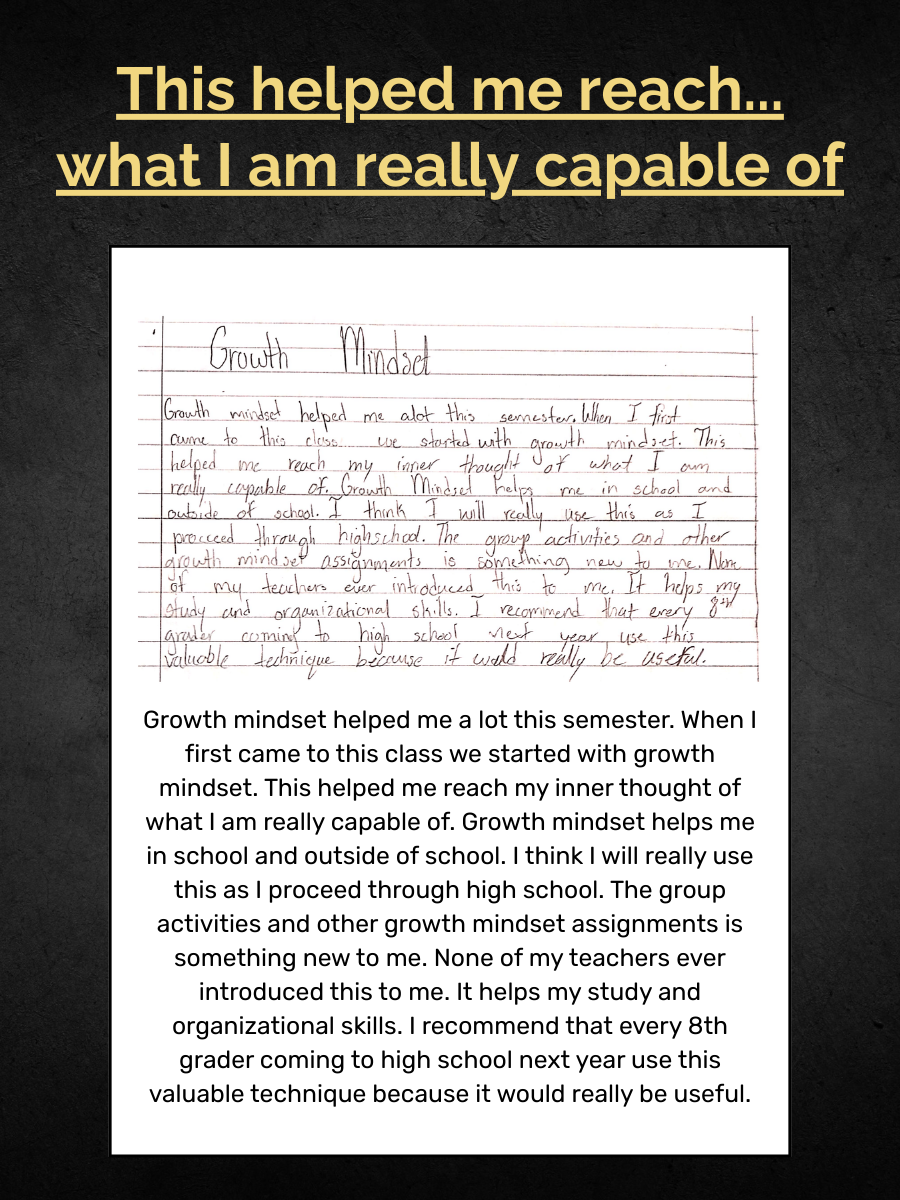 This helped me reach...
what I am really capable of
Growth Mindset
Growth mindset helped me alot this semester. When I first
came to this class we started with growth mindset. This
helped me reach my inner thought of what I am
really capable of. Growth Mindset helps me in school and
outside of school. I think I will really use this as I
proceed through highschool. The group activities and other
growth mindset assignments is something new to me. Non
of my teachers ever introduced this to me. It helps my
study and organizational skills. I recommend that every 8th
grader coming to high school next year use this
valuable technique because it would really be useful.
Growth mindset helped me a lot this semester. When I
first came to this class we started with growth
mindset. This helped me reach my inner thought of
what I am really capable of. Growth mindset helps me
in school and outside of school. I think I will really use
this as I proceed through high school. The group
activities and other growth mindset assignments is
something new to me. None of my teachers ever
introduced this to me. It helps my study and
organizational skills. I recommend that every 8th
grader coming to high school next year use this
valuable technique because it would really be useful.